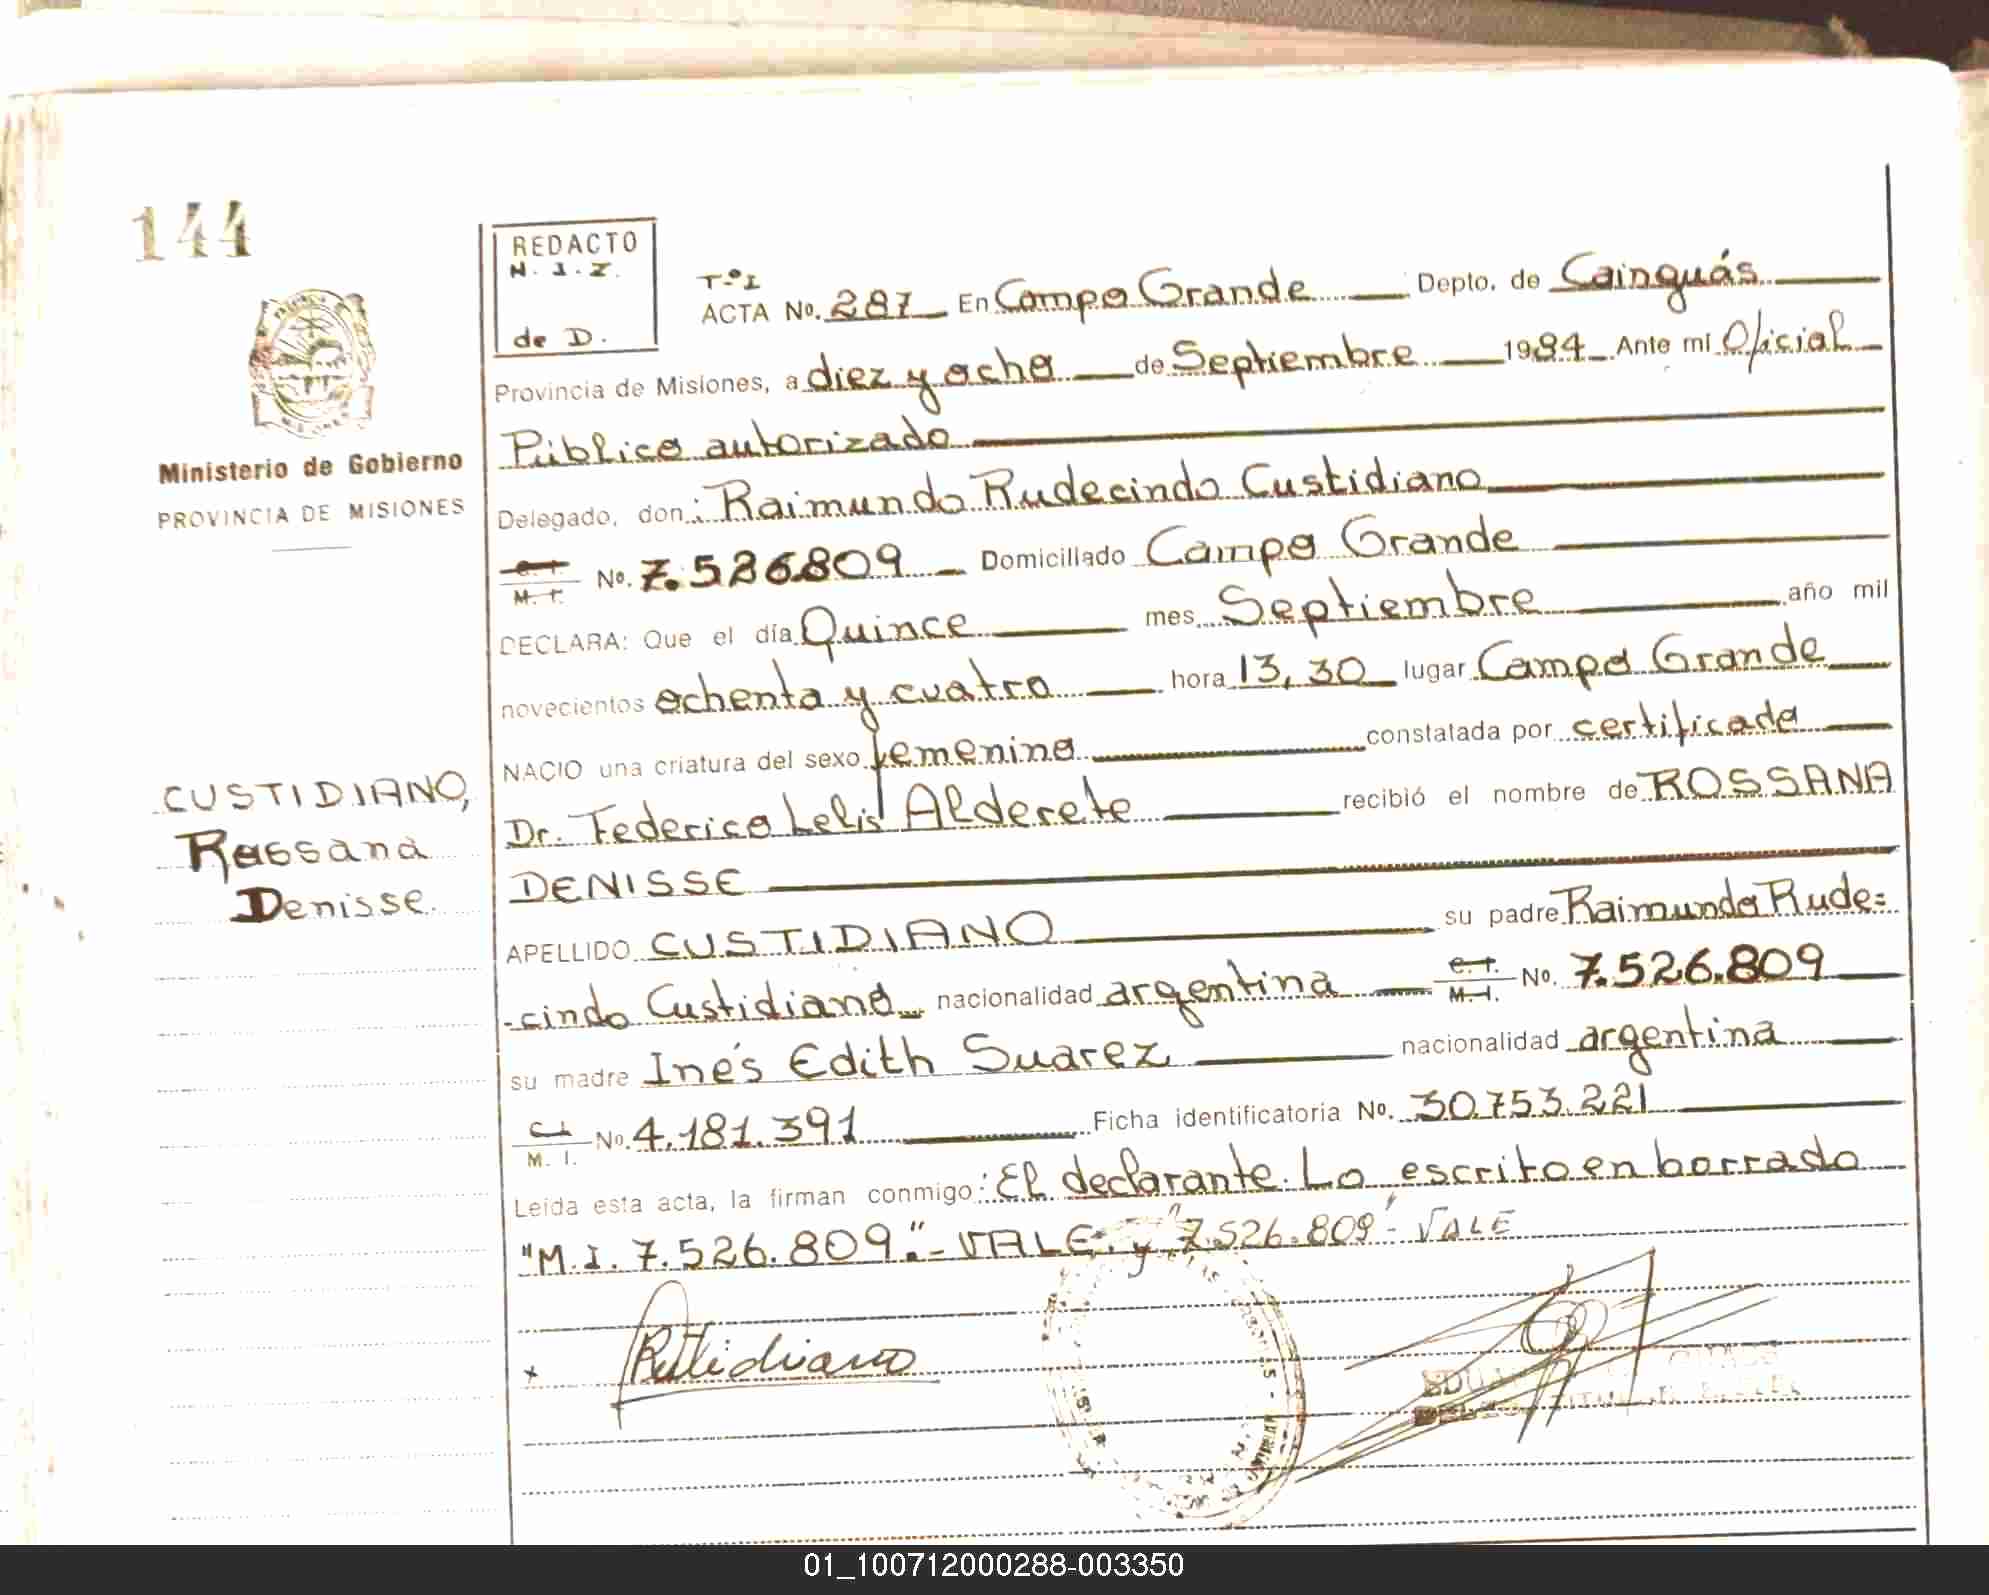 144
REDACTO
N. I. Z.
de D.
Ministerio de Gobierno
PROVINCIA DE MISIONES
CUSTIDIANO,
Rossana
Denisse.
Tº I
ACTA No. 287 En Campo Grande Depto. de Cainguás
Provincia de Misiones, a diez y ocho de Septiembre 1984 Ante mi Oficial
Público autorizado
Delegado, don: Raimundo Rudecindo Custidiano
C. I. M. I. No. 7.526809 Domiciliado Campo Grande
DECLARA: Que el día Quince mes Septiembre año mil
novecientos ochenta y cuatro hora 13,30 lugar Campo Grande
NACIO una criatura del sexo femenino constatada por certificado
Dr. Federico Lelis Alderete recibió el nombre de ROSSANA
DENISSE
APELLIDO CUSTIDIANO su padre Raimundo Rude=
-cindo Custidiano nacionalidad argentina C. I. M. I. No. 7.526.809
su madre Inés Edith Suarez nacionalidad argentina
C. I. M. I. No. 4.181.391 Ficha identificatoria No. 30.753.221
Leída esta acta, la firman conmigo: El declarante. Lo escrito en borrado
"M.I. 7.526.809."- VALE. y "7.526.809"- VALE
01_100712000288-003350